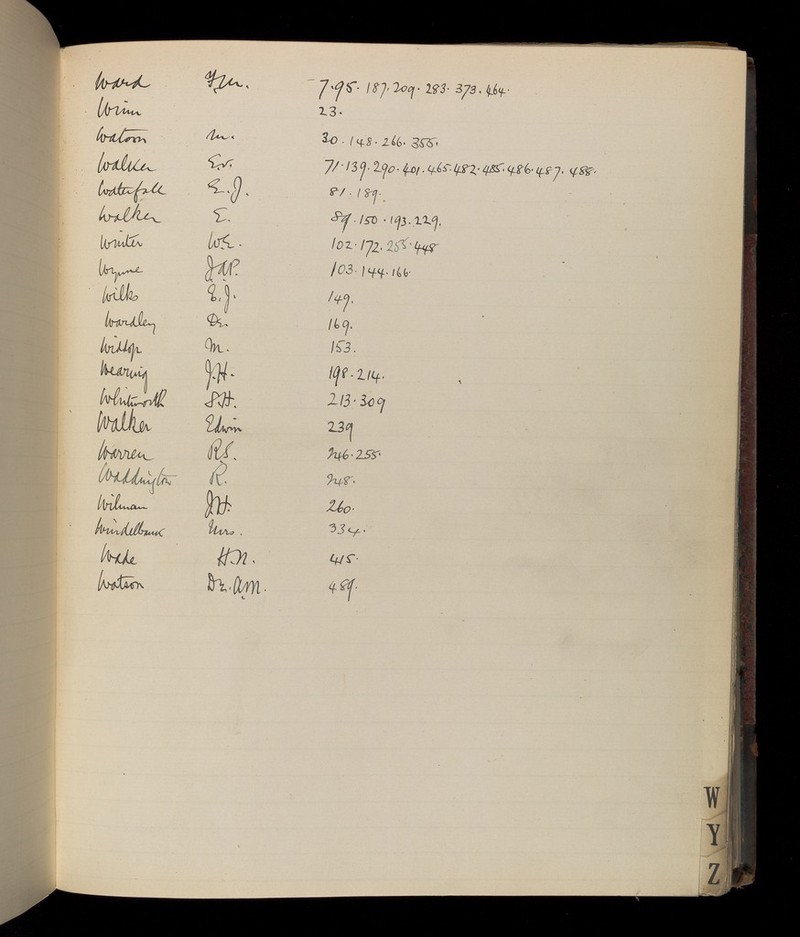 Ward F.W. 7. 95. 187. 209. 283. 373. 464.
Winn 23.
Watson M. 30. 148. 266. 355.
Walker Ev. 71. 139. 290. 401. 465. 482. 485. 486. 487. 488.
Waterfall E.J. 81. 189.
Walker E. 89. 150. 193. 229.
Winter W.E. 102. 172. 255. 448
Wynne J.A.P. 103. 144. 166.
Wilks E.J. 149.
Wardley Dr. 169.
Widdop M. 153.
Wearing J.H. 198. 214.
Whitworth S.H. 213. 309
Walker Edwin 239
Warren R.S. 246. 255.
Waddington R. 248.
Wilman J.H. 260.
Windelbank Mrs. 334.
Wade H.N. 415.
Watson Dr. A.M. 489.
W
Y
Z